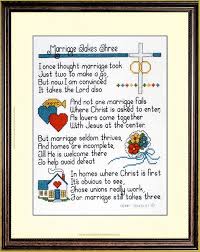 Marriage Takes Three
I once thought marriage took
Just two to make a go,
But now I am convinced
It takes the Lord also
And not one marriage fails
Where Christ is asked to enter,
As lovers come together
With Jesus at the center
But marriage seldom thrives,
And homes are incomplete,
Till He is welcome there
To help avoid defeat
In homes where Christ is first
It's obvious to see,
Those unions really work,
For marriage still takes three